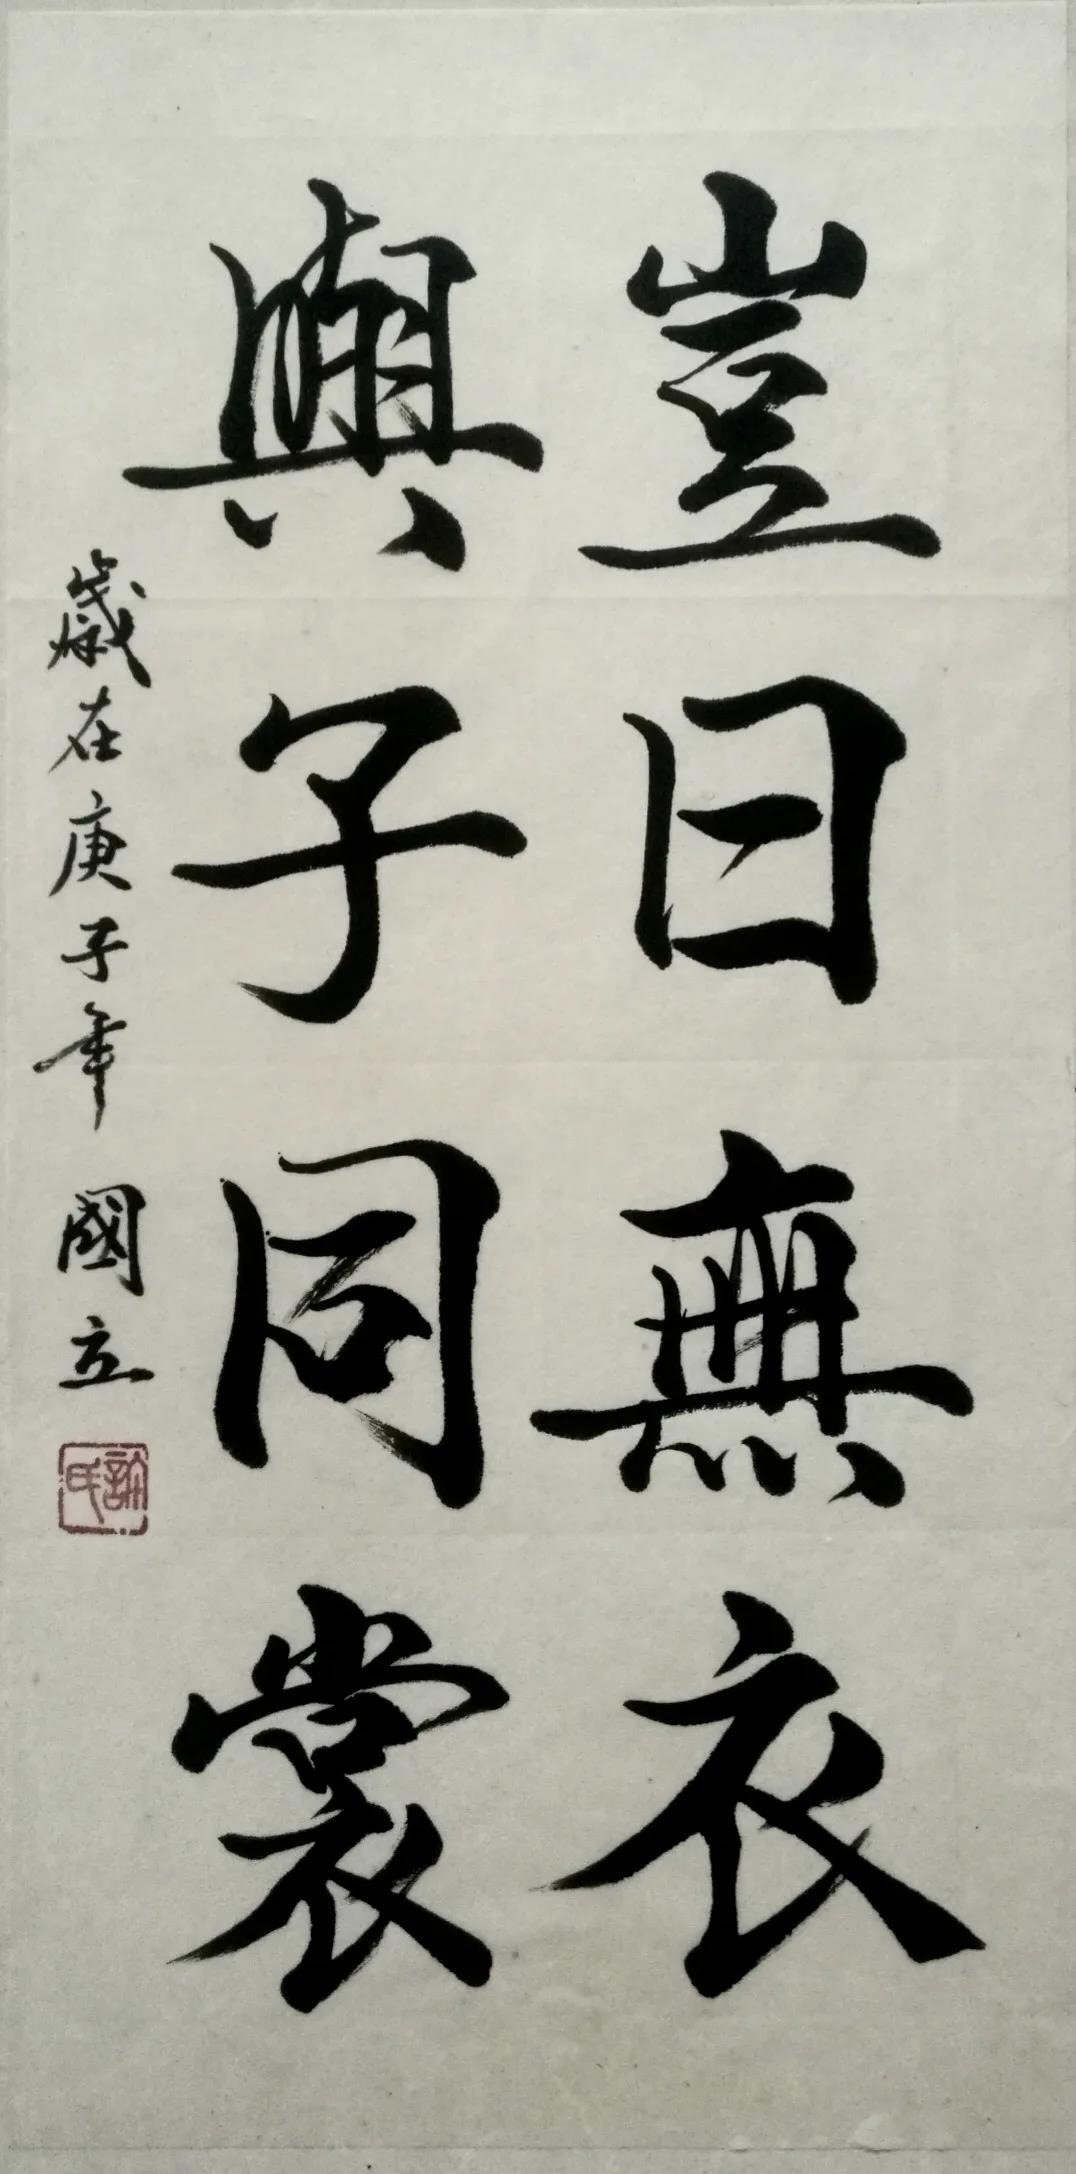 豈曰無衣
與子同裳
歲在庚子年 國立